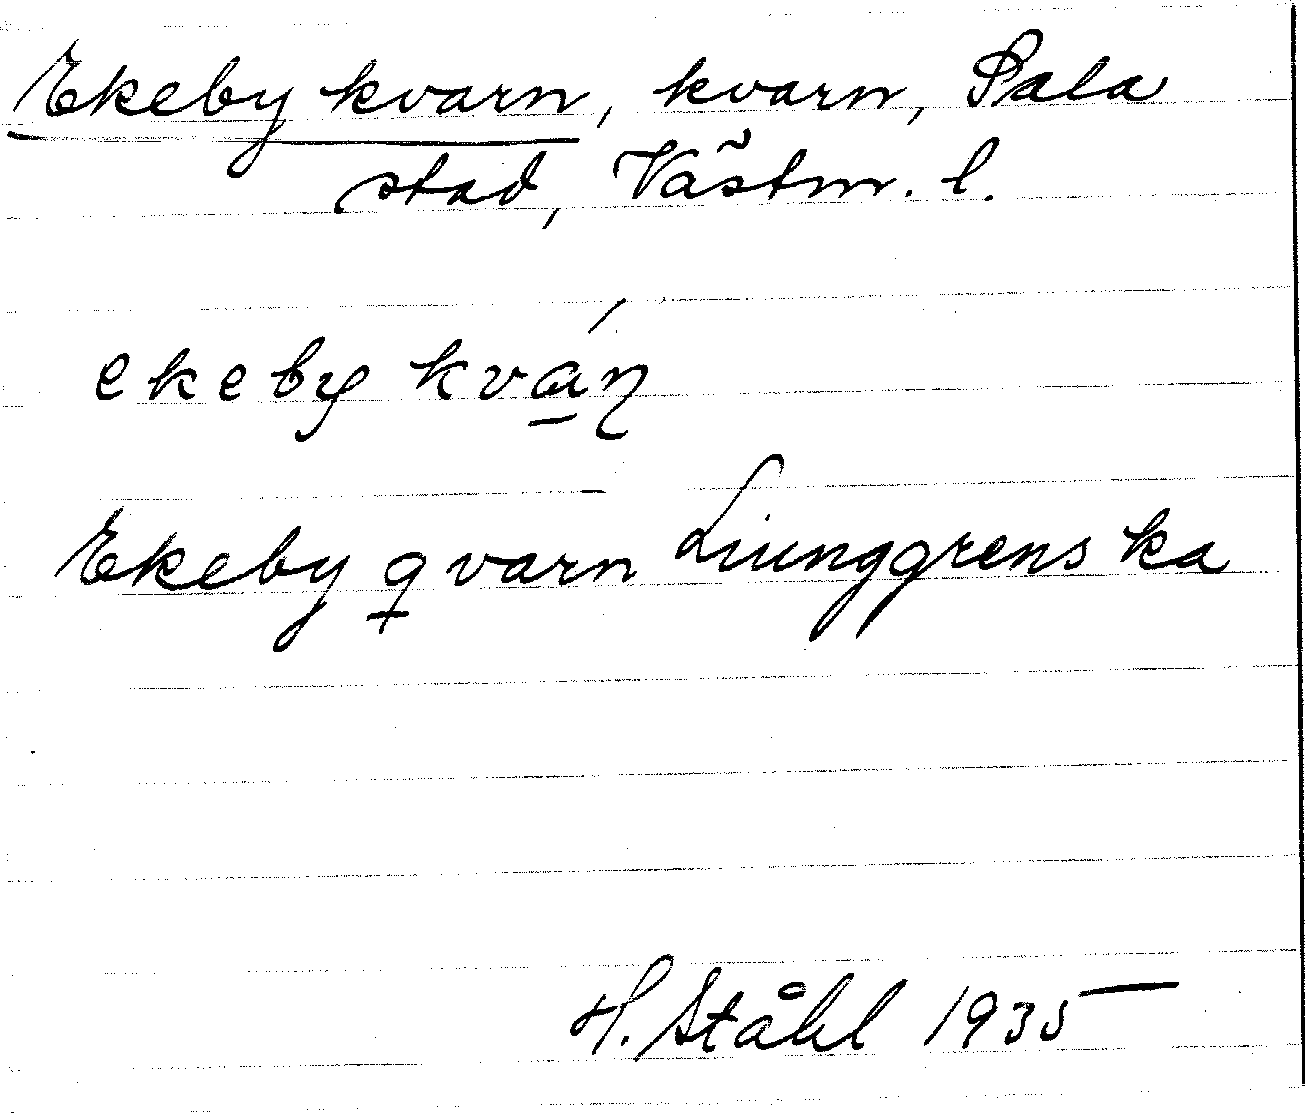 Ekeby kvarn, kvarn, Sala
stad, Västm. l.
ekeby kvá̱ɳ
Ekeby qvarn Liunggrenska
H. Ståhl 1935